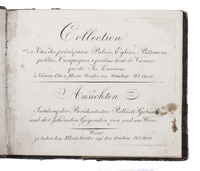 Collection
de Vues des principaux Palais, Eglises, Bâtimens
publics, Campagnes et jardins tant de Vienne
que de Ses Environs.
à Vienne Chez Marie Geisler au Graben
Ansichten
Sammlung der Berühmtesten Palläste, Gebäude
und der schönsten Gegenden von und um Wien
Wien
zu haben bey Maria Geisler auf den Graben